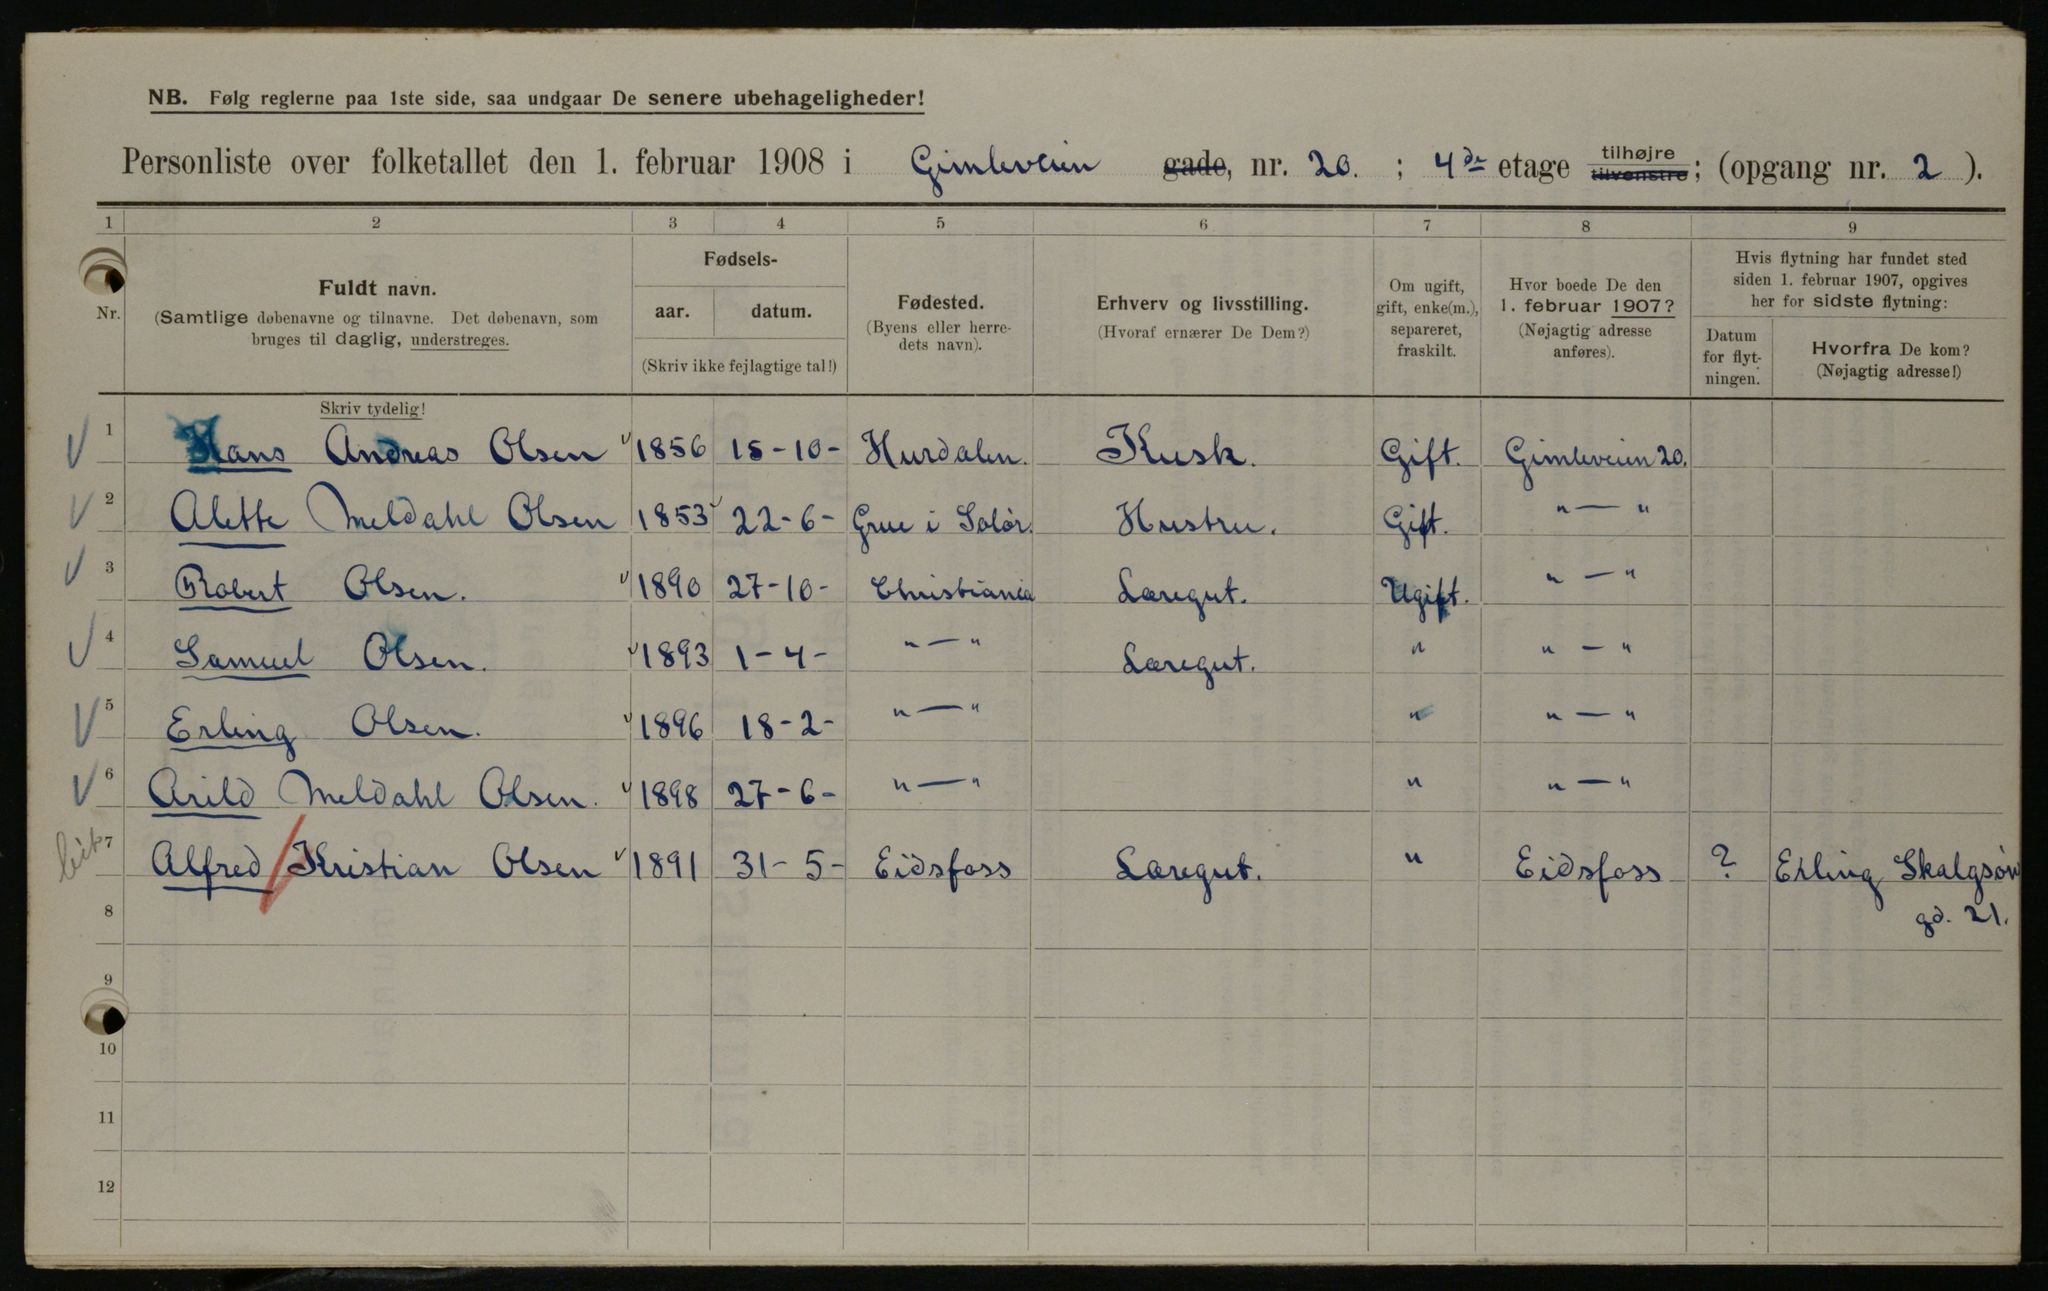 NB. Følg reglerne paa 1ste side, saa undgaar De senere ubehageligheder!
Personliste over folketallet den 1. februar 1908 i Gimleveien gade, nr. 20. ; 4de etage tilhøjre tilvenstre; (opgang nr. 2 ).
1 2 3 4 5 6 7 8 9
Nr.
Fuldt navn.
(Samtlige døbenavne og tilnavne. Det døbenavn, som
bruges til daglig, understreges.
Skriv tydelig!
Fødsels-
aar. datum.
(Skriv ikke fejlagtige tal!)
Fødested.
(Byens eller herre-
dets navn).
Erhverv og livsstilling.
(Hvoraf ernærer De Dem?)
Om ugift,
gift, enke(m.),
separeret,
fraskilt.
Hvor boede De den
1. februar 1907?
(Nøjagtig adresse
anføres).
Hvis flytning har fundet sted
siden 1. februar 1907, opgives
her for sidste flytning:
Datum
for flyt-
ningen.
Hvorfra De kom?
(Nøjagtig adresse!)
1 Hans Andreas Olsen 1856 15-10- Hurdalen. Kusk. Gift. Gimleveien 20.
2 Alette Meldahl Olsen 1853 22-6- Grue i Solør. Hustru. Gift. " — "
3 Robert Olsen. 1890 27-10- Christiania Læregut. Ugift. " — "
4 Samuel Olsen. 1893 1-4- " — " Læregut. " " — "
5 Erling Olsen. 1896 18-2- " — " " " — "
6 Arild Meldahl Olsen. 1898 27-6- " — " " " — "
7 Alfred Kristian Olsen 1891 31-5- Eidsfoss Læregut. " Eidsfoss ? Erling Skalgsøn
8 gd. 21.
9
10
11
12